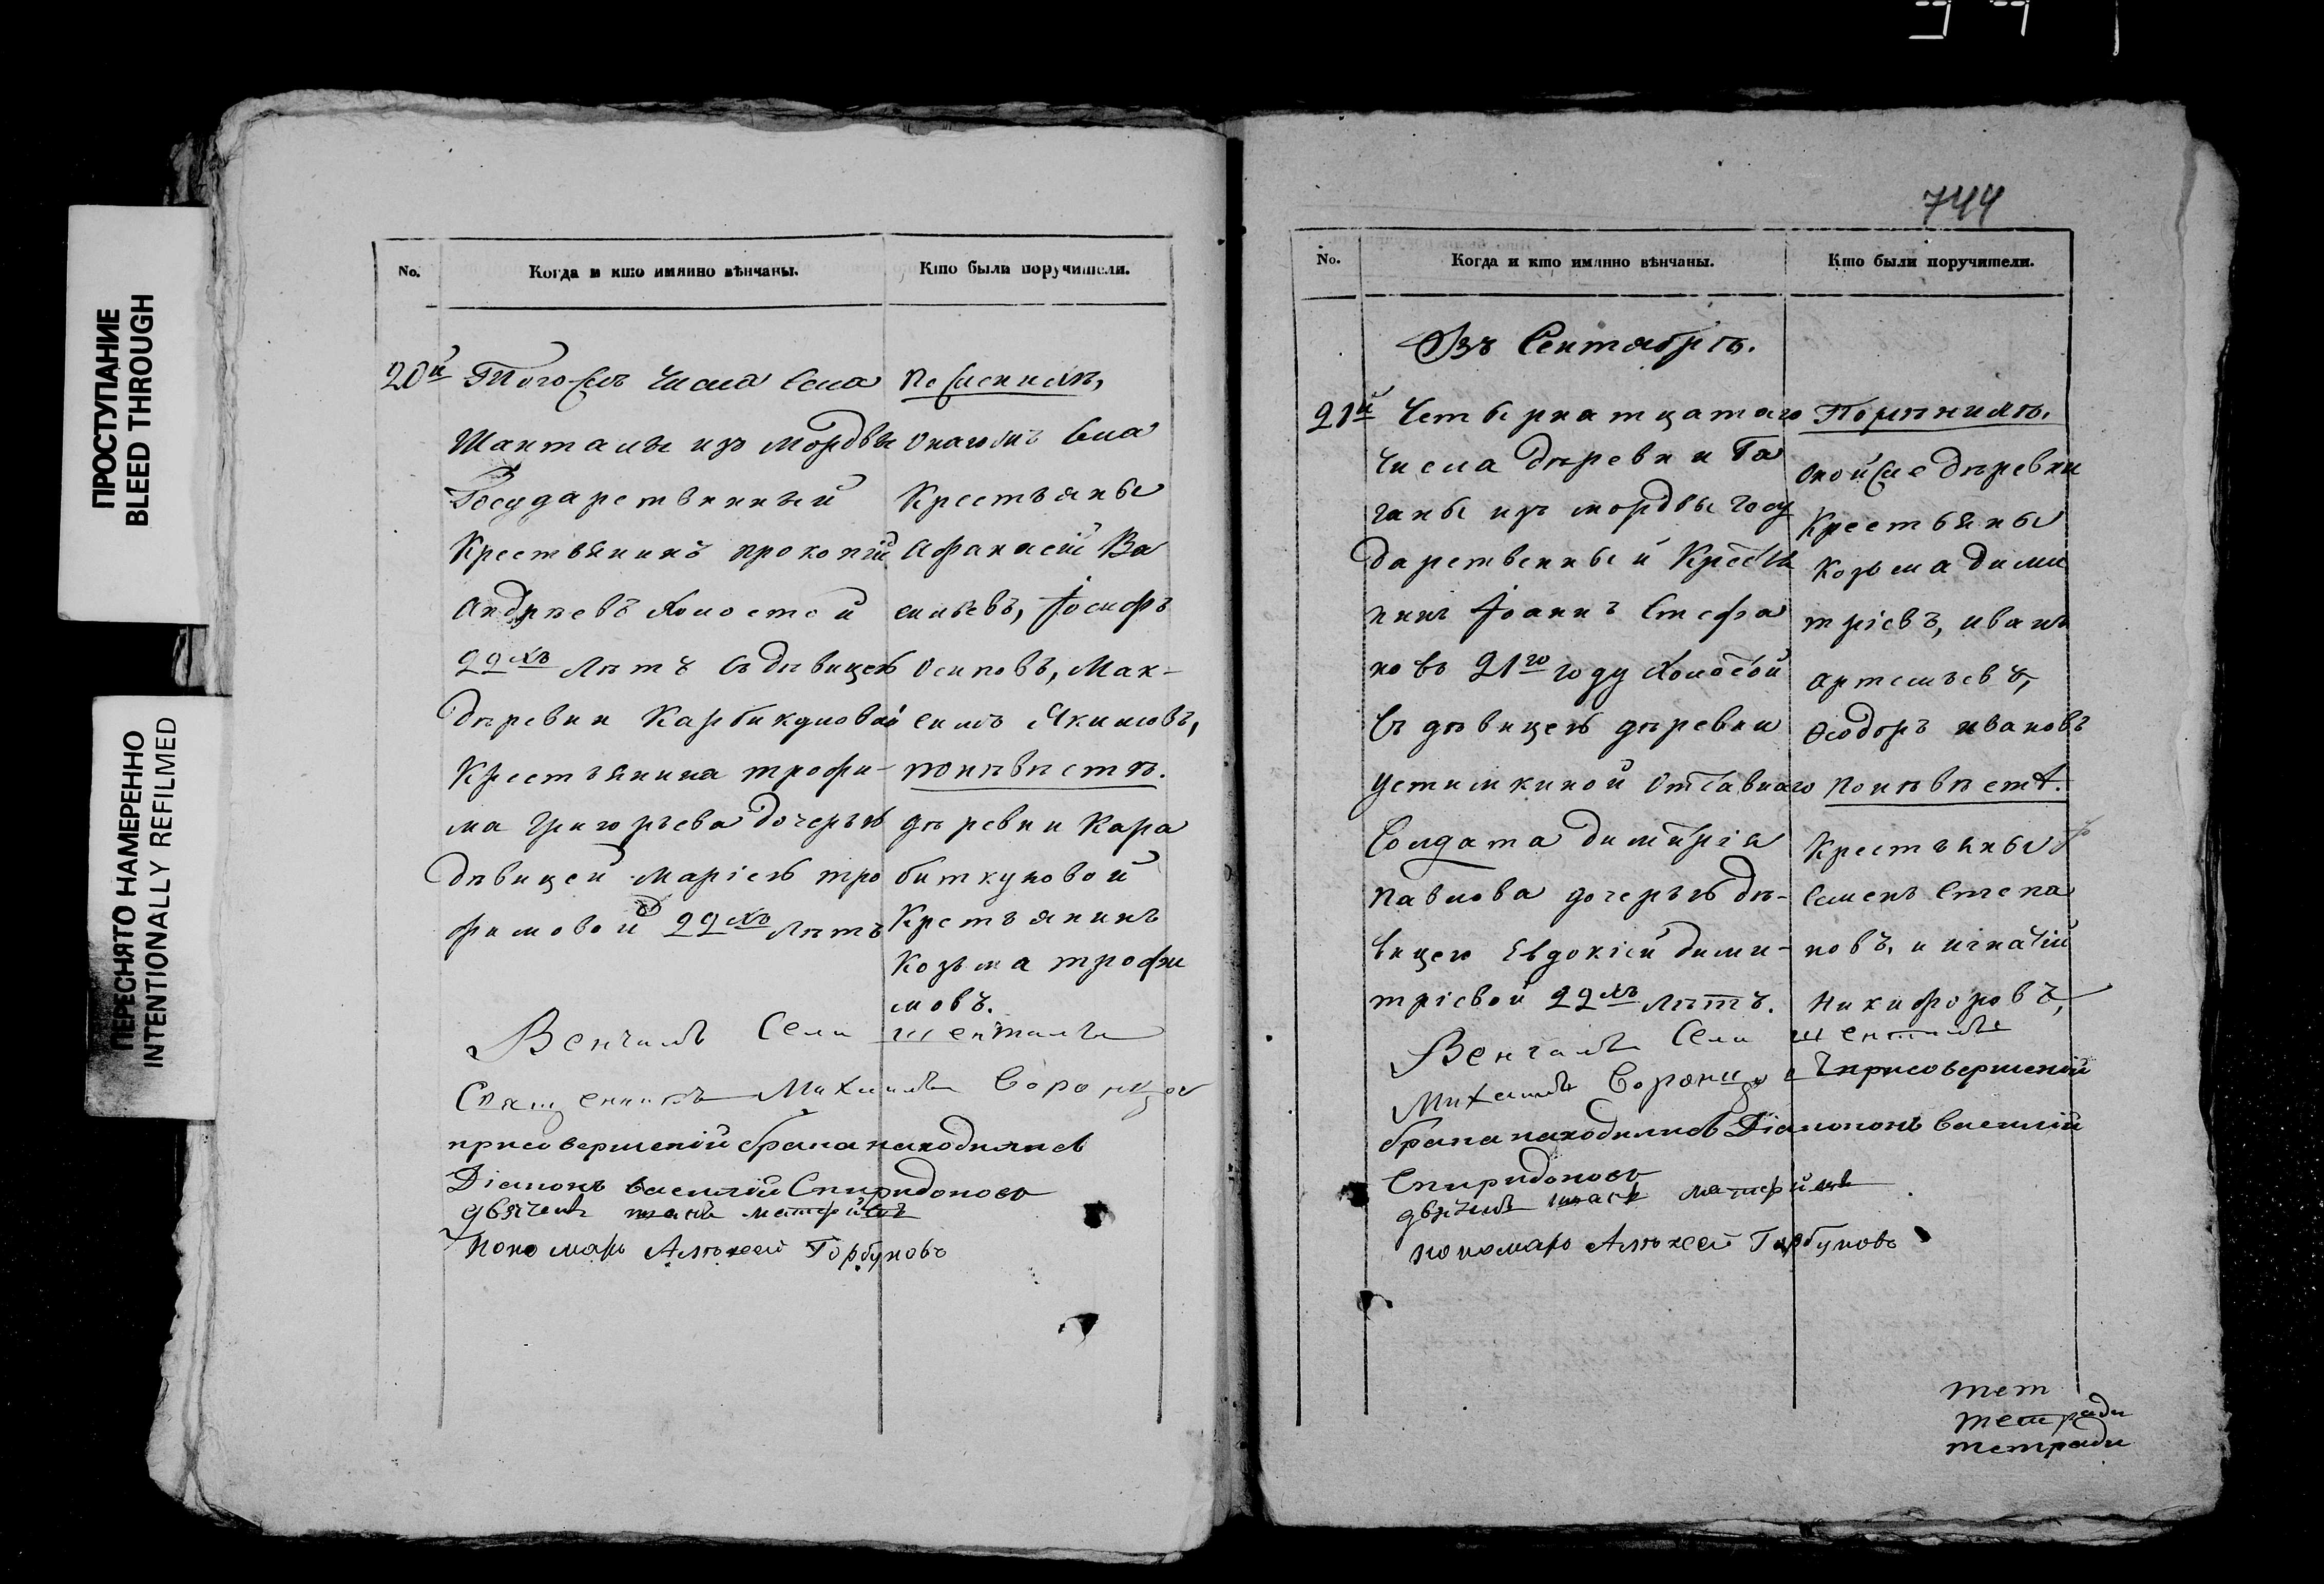 ПРОСТУПАНИЕ
BLEED THROUGH
ПЕРЕСНЯТО НАМЕРЕННО
INTENTIONALLY REFILMED
No.
Когда и кто имянно вѣнчаны.
Кто были поручители.
20й
Тогожъ числа села
Шанталы изъ мордвы
Государственный
Крестьянинъ прокопій
Андрѣевъ холостой
22хъ лѣтъ съ дѣвицею
деревни
Крестьянина трофи-
ма григорьева дочерью
дѣвицей маріею тро
фимовой 22хъ лѣтъ
По женихѣ,
онагожъ села
Крестьяны
Афанасій Ва
сильевъ, Іосифъ
Осиповъ, Мак-
симъ Якимовъ,
понѣвѣстѣ.
дѣревни Кара
биткуловой
Крстьянинъ
Козьма трофи
мовъ.
Венчалъ Села шенталы
Священникъ Михаилъ
присовершеній брака находились
Діаконъ василій Спиридоновъ
Пономарь Алѣксей Горбуновъ
744
No.
Когда и кто имянно вѣнчаны.
Кто были поручители.
Въ Сентябрѣ.
21й
Четырнатцатаго
числа дѣревни Та
ганы изъ мордвы госу
дарственный Крестья
нинъ Іоаннъ Стефа
новъ 21го году холостой
съ дѣвицею дѣревни
устимкиной отставнаго
Солдата димитрія
павлова дочерью дѣ-
вицею Евдокіей дими-
тріевой 22хъ лѣтъ.
По женихѣ,
оной же дѣревни
Крестьяны
Козьма дими
тріевъ, иванъ
артемьевъ,
Ѳеодоръ ивановъ
понѣвѣстѣ.
Крестьяны
семенъ степа
новъ, и игнатій
никифоровъ,
Венчалъ Села шенталы
Михаилъ
присовершеній
брака находились Діаконъ василій
Спиридоновъ
пономарь Алѣксей Горбуновъ
тет
тетради
тетради